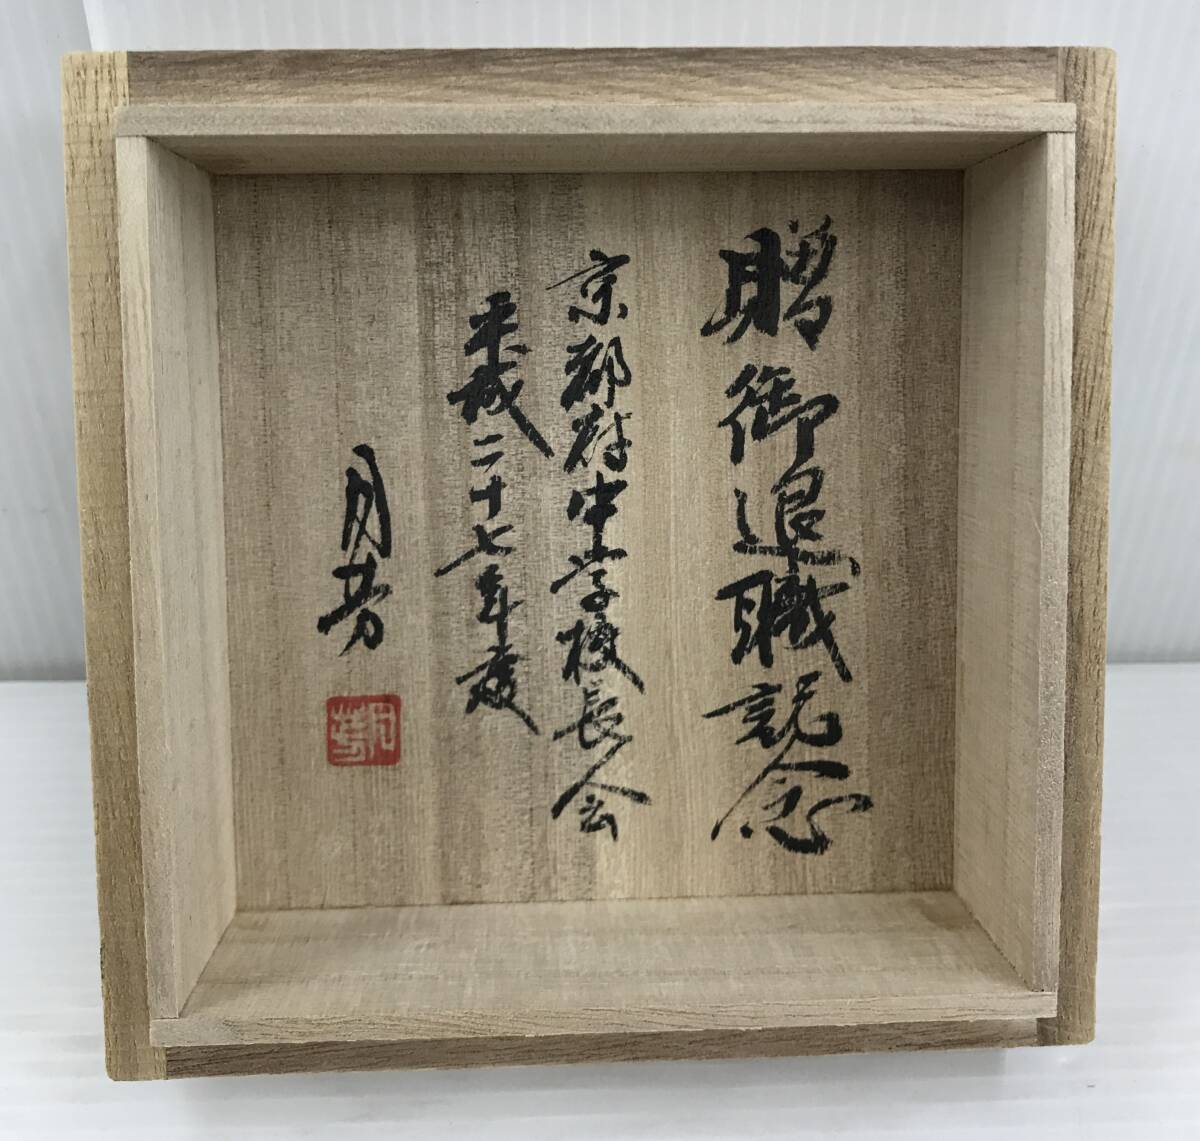 贈御退職記念
京都府中学校長会
平成二十七年度